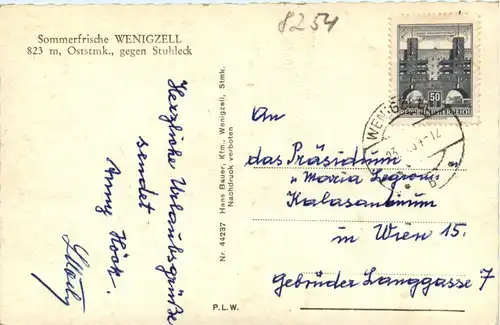 8254
Sommerfrische WENIGZELL
823 m, Oststmk., gegen Stuhleck
Herzliche Urlaubsgrüße
sendet
Anny
Nr. 44237 Hans Bauer, Kfm., Wenigzell, Stmk.
Nachdruck verboten
P. L. W.
50
An
das Präsidium
"Maria Legion"
Kalasantinum
in Wien 15.
Gebrüder Langgasse 7